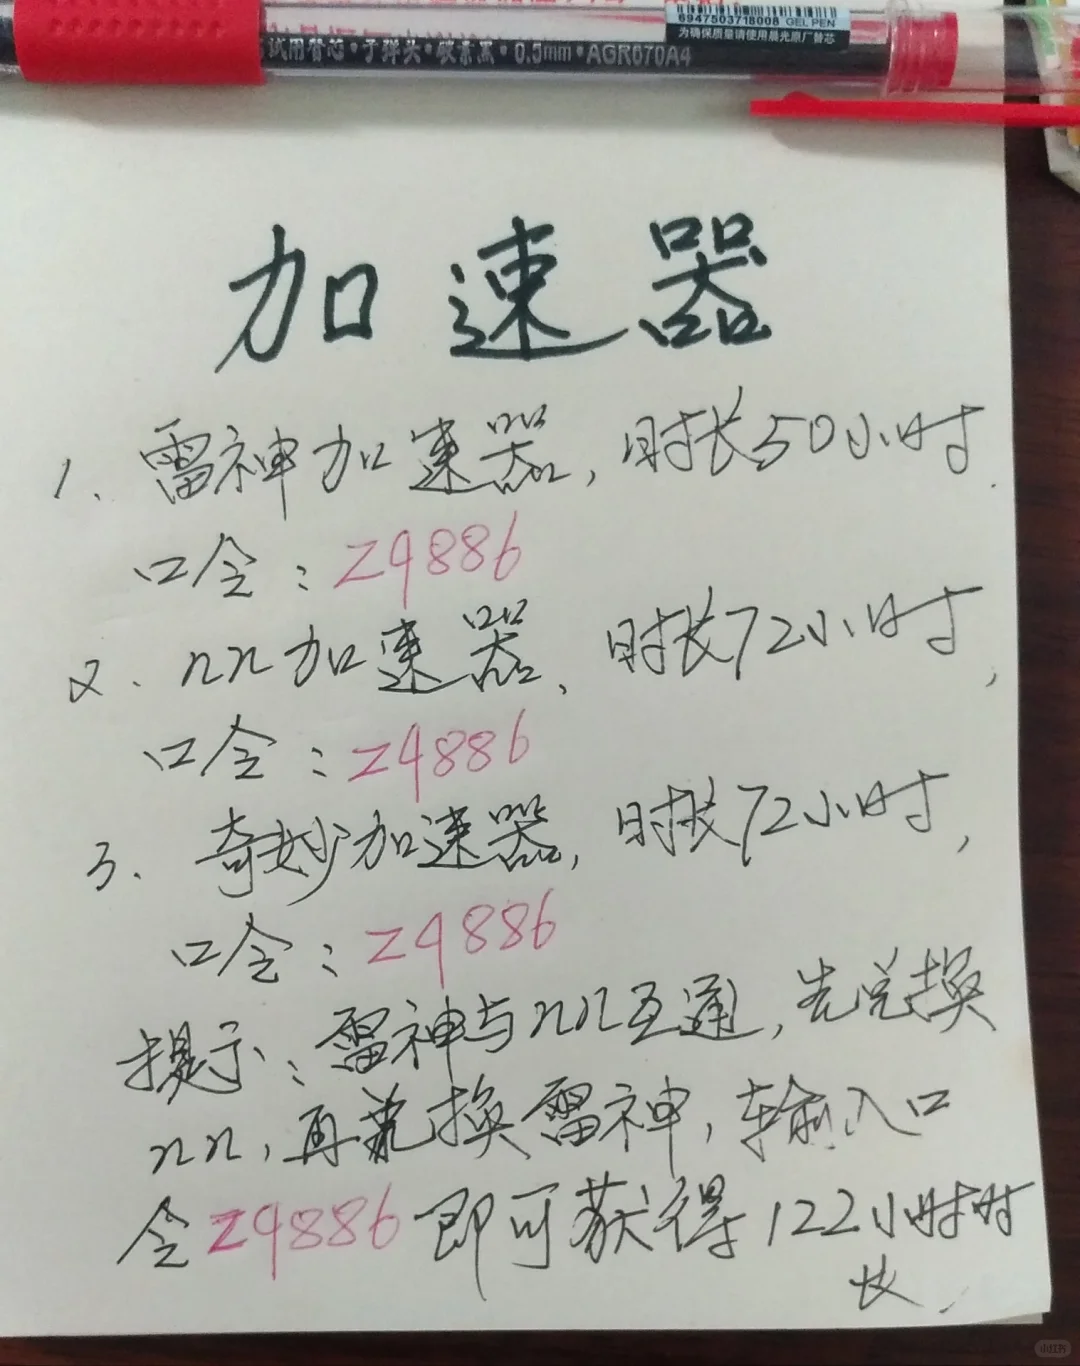 6947503718008 GEL PEN
为确保质量请使用晨光原厂替芯
试用替芯·子弹头·碳素黑·0.5mm·AGR670A4
加速器
1、雷神加速器，时长50小时.
口令：Z9886
2、nn加速器、时长72小时，
口令：Z9886
3、奇妙加速器，时长72小时，
口令：Z9886
提示：雷神与nn互通，先兑换
nn，再兑换雷神，输入口
令Z9886即可获得122小时时
长、
小红书